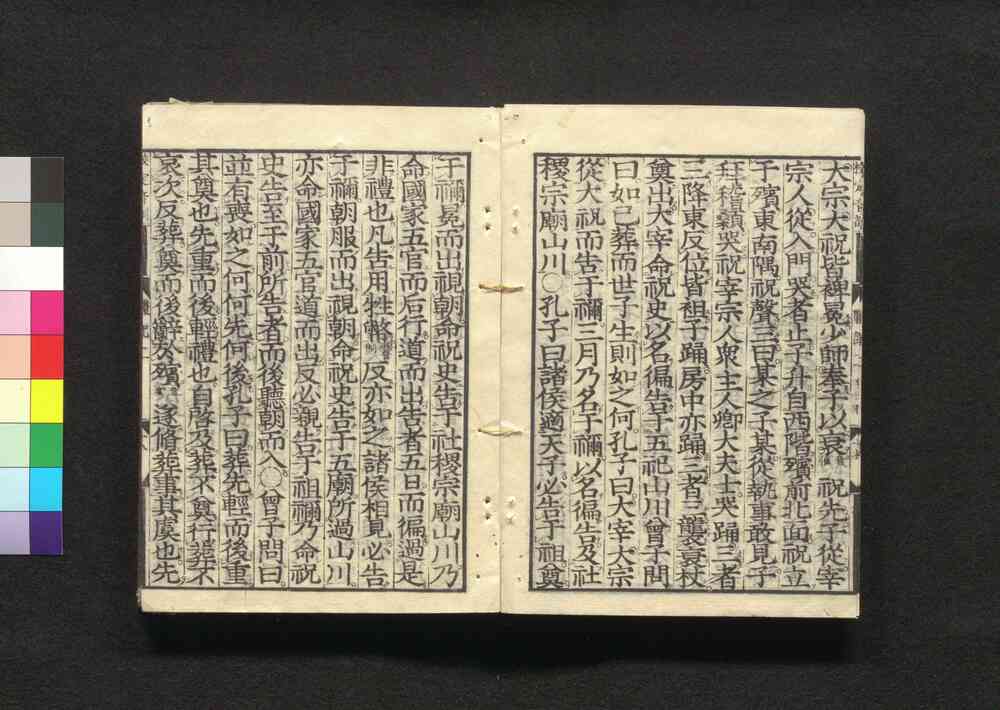 大宗大祝皆裨冕少師奉子以衰祝先子從宰
宗人從入門哭者止子升自西階殯前北面祝立
于殯東南隅祝聲三曰某之子某從執事敢見子
拜稽顙哭祝宰宗人衆主人卿大夫士哭踊三者
三降東反位皆袒子踊房中亦踊三者三襲衰杖
奠出大宰命祝史以名徧告于五祀山川曾子問
曰如已葬而世子生則如之何孔子曰大宰大宗
從大祝而告于禰三月乃名于禰以名徧告及社
稷宗廟山川○孔子曰諸侯適天子必告于祖奠
于禰冕而出視朝命祝史告于社稷宗廟山川乃
命國家五官而后行道而出告者五日而徧過是
非禮也凡告用牲幣反亦如之諸侯相見必告
于禰朝服而出視朝命祝史告于五廟所過山川
亦命國家五官道而出反必親告于祖禰乃命祝
史告至于前所告者而後聽朝而入○曾子問曰
並有喪如之何何先何後孔子曰葬先輕而後重
其奠也先重而後輕禮也自啓及葬不奠行葬不
哀次反葬奠而後辭於殯遂脩葬事其虞也先